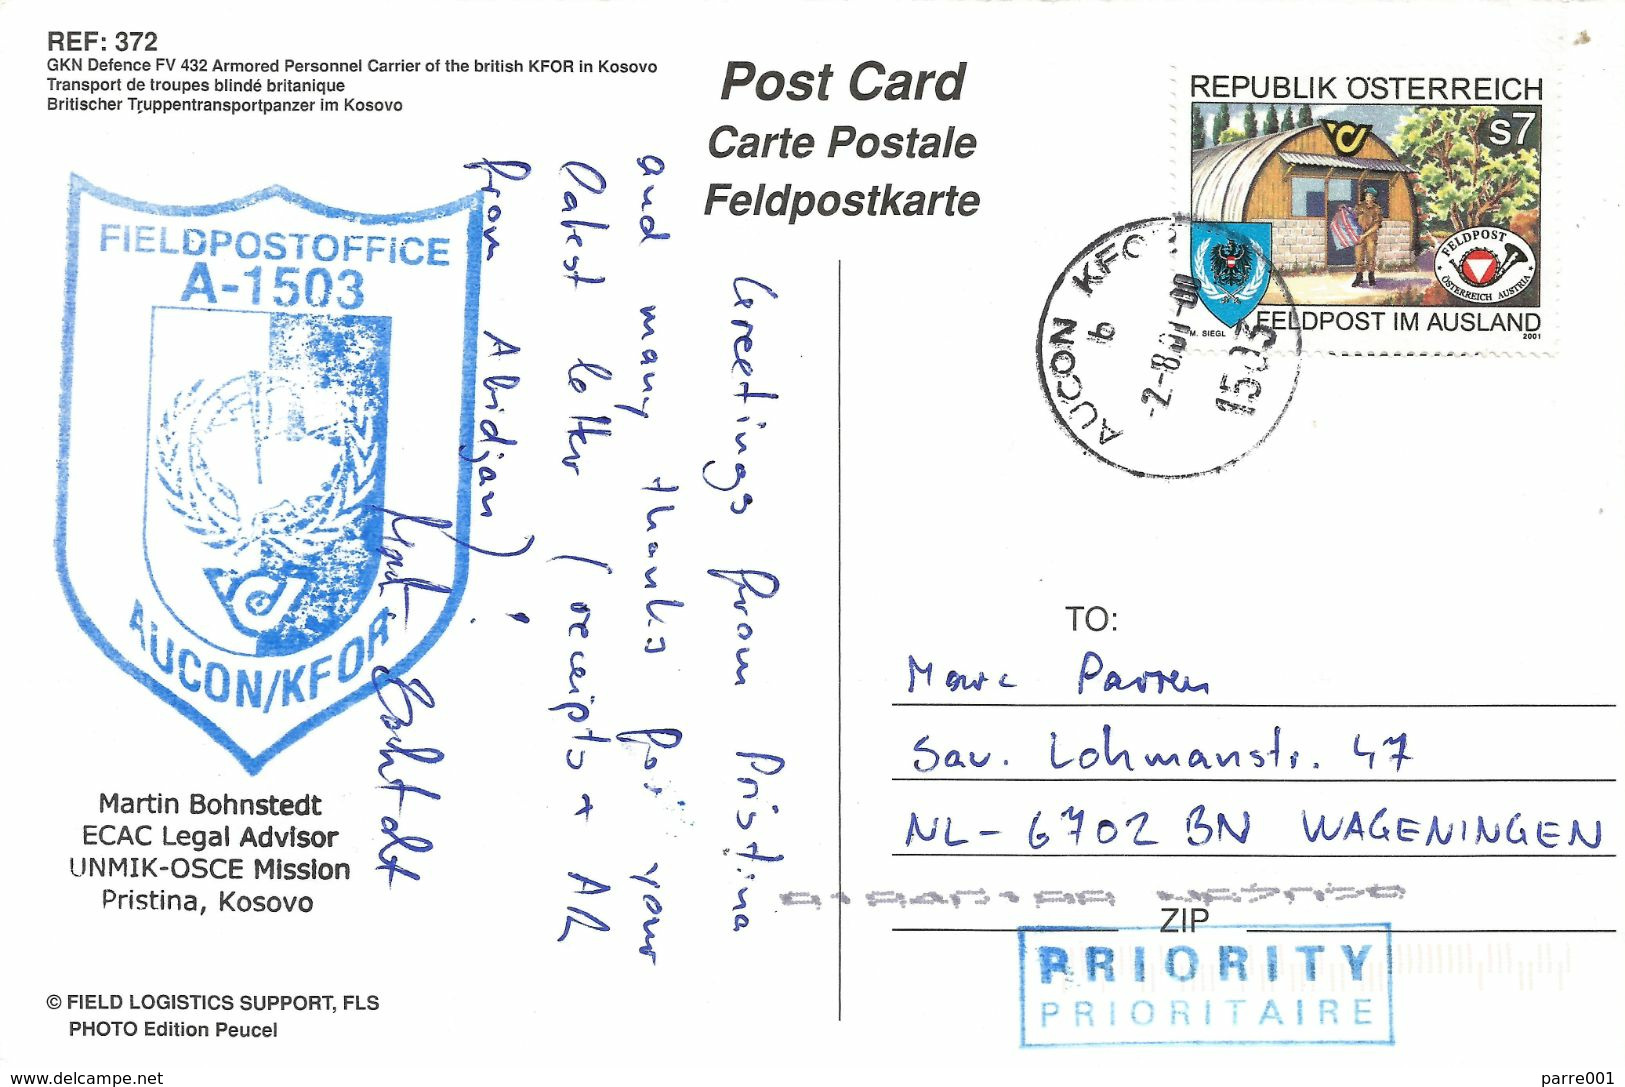 REF: 372
GKN Defence FV 432 Armored Personnel Carrier of the british KFOR in Kosovo
Transport de troupes blindé britanique
Britischer Truppentransportpanzer im Kosovo
Post Card
Carte Postale
Feldpostkarte
REPUBLIK ÖSTERREICH
S7
FELDPOST
ÖSTERREICH AUSTRIA
M. SIEGL
FELDPOST IM AUSLAND
2001
AUCON KFOR
b
-2.-8.01-00
1503
FIELDPOSTOFFICE
A-1503
AUCON/KFOR
Greetings from Pristina
and many thanks for your
latest letter (receipts +
from Abidjan)!
Martin Bohnstedt
ECAC Legal Advisor
UNMIK-OSCE Mission
Pristina, Kosovo
© FIELD LOGISTICS SUPPORT, FLS
PHOTO Edition Peucel
TO:
Marc Parren
Sav. Lohmanstr. 47
NL-6702 BN WAGENINGEN
ZIP
PRIORITY
PRIORITAIRE
www.delcampe.net
parre001